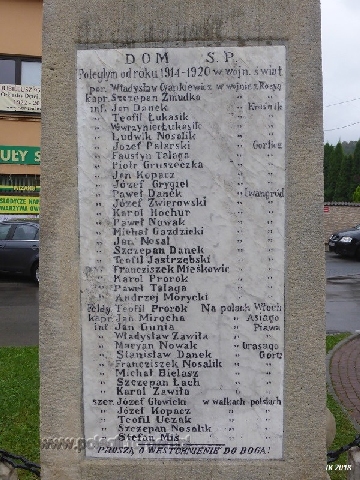 DOM S.P.
Poległym od roku 1914-1920 w wojn. świat
por. Władysław Cyankiewicz w wojnie z Rosyą
kapr. Szczepan Żmudka " "
inf. Jan Danek " Kraśnik
" Teofil Łukasik " "
" Wawrzyniec Łukasik " "
" Ludwik Nosalik " "
" Józef Palarski " Gorlice
" Faustyn Talaga " "
" Piotr Gruszeczka " "
" Jan Kopacz " "
" Józef Grygiel " "
" Paweł Danek " Iwangród
" Józef Zwierowski " "
" Karol Kochur " "
" Paweł Nowak " "
" Michał Gazdzicki " "
" Jan Nosal " "
" Szczepan Danek " "
" Teofil Jastrzębski " "
" Franciszek Mieśkowic " "
" Karol Prorok " "
" Paweł Talaga " "
" Andrzej Morycki " "
Teofil Prorok Na polach Włoch
kapr. Jan Mirocha " Asiago
inf. Jan Gunia " Piawa
" Władysław Zawiła " "
" Maryan Nowak " Grasago
" Stanisław Danek " Gory
" Franciszek Nosalik " "
" Michał Bielasz " "
" Szczepan Łach " "
" Karol Zawiła " "
szer. Józef Głowicki w walkach polskich
" Józef Kopacz " "
" Teofil Uczak " "
" Szczepan Nosalik " "
" Stefan Miś " "
PROSZĄ O WESTCHNIENIE DO BOGA!
UŁY Ś
IX 2018